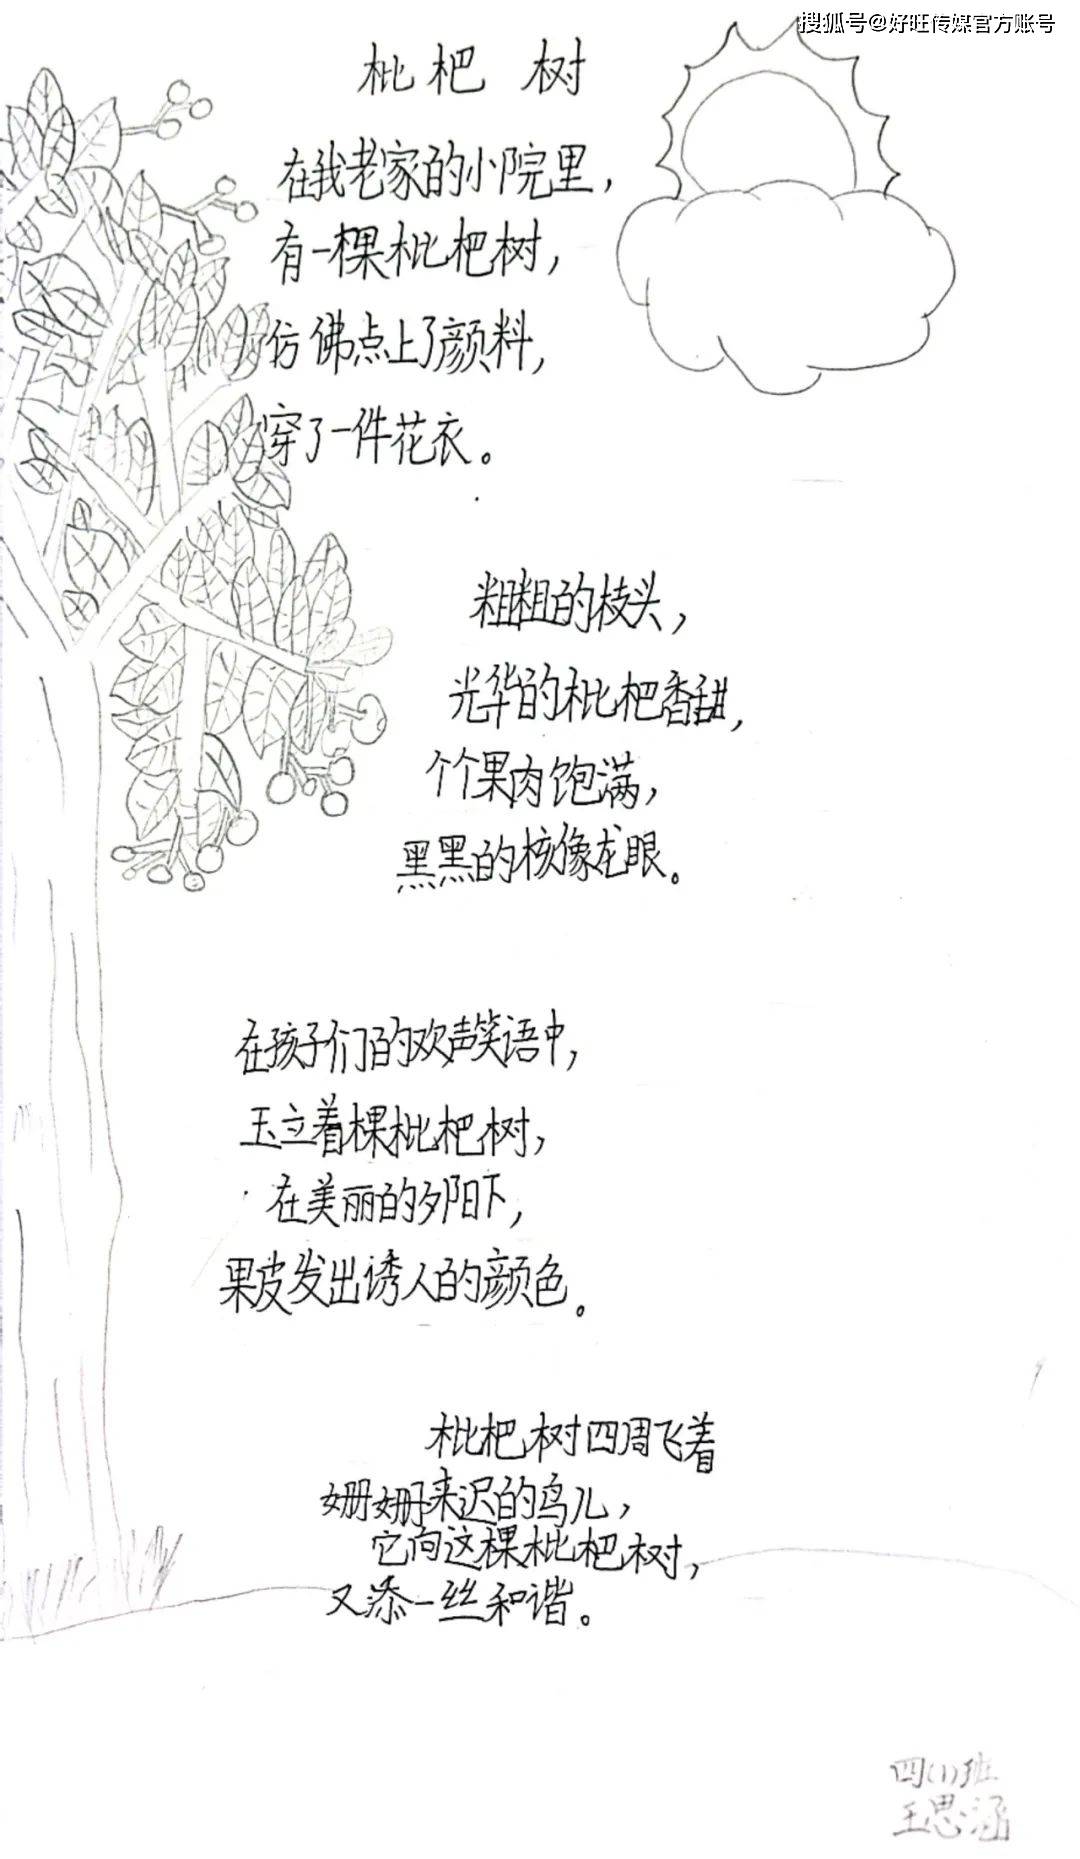 搜狐号@好旺传媒官方账号
枇杷树
在我老家的小院里，
有一棵枇杷树，
仿佛点上了颜料，
穿了一件花衣。
粗粗的枝头，
光华的枇杷香甜，
个个果肉饱满，
黑黑的核像龙眼。
在孩子们的欢声笑语中，
玉立着棵枇杷树，
在美丽的夕阳下，
果皮发出诱人的颜色。
枇杷树四周飞着
姗姗来迟的鸟儿，
它向这棵枇杷树，
又添一丝和谐。
四(1)班
王思涵